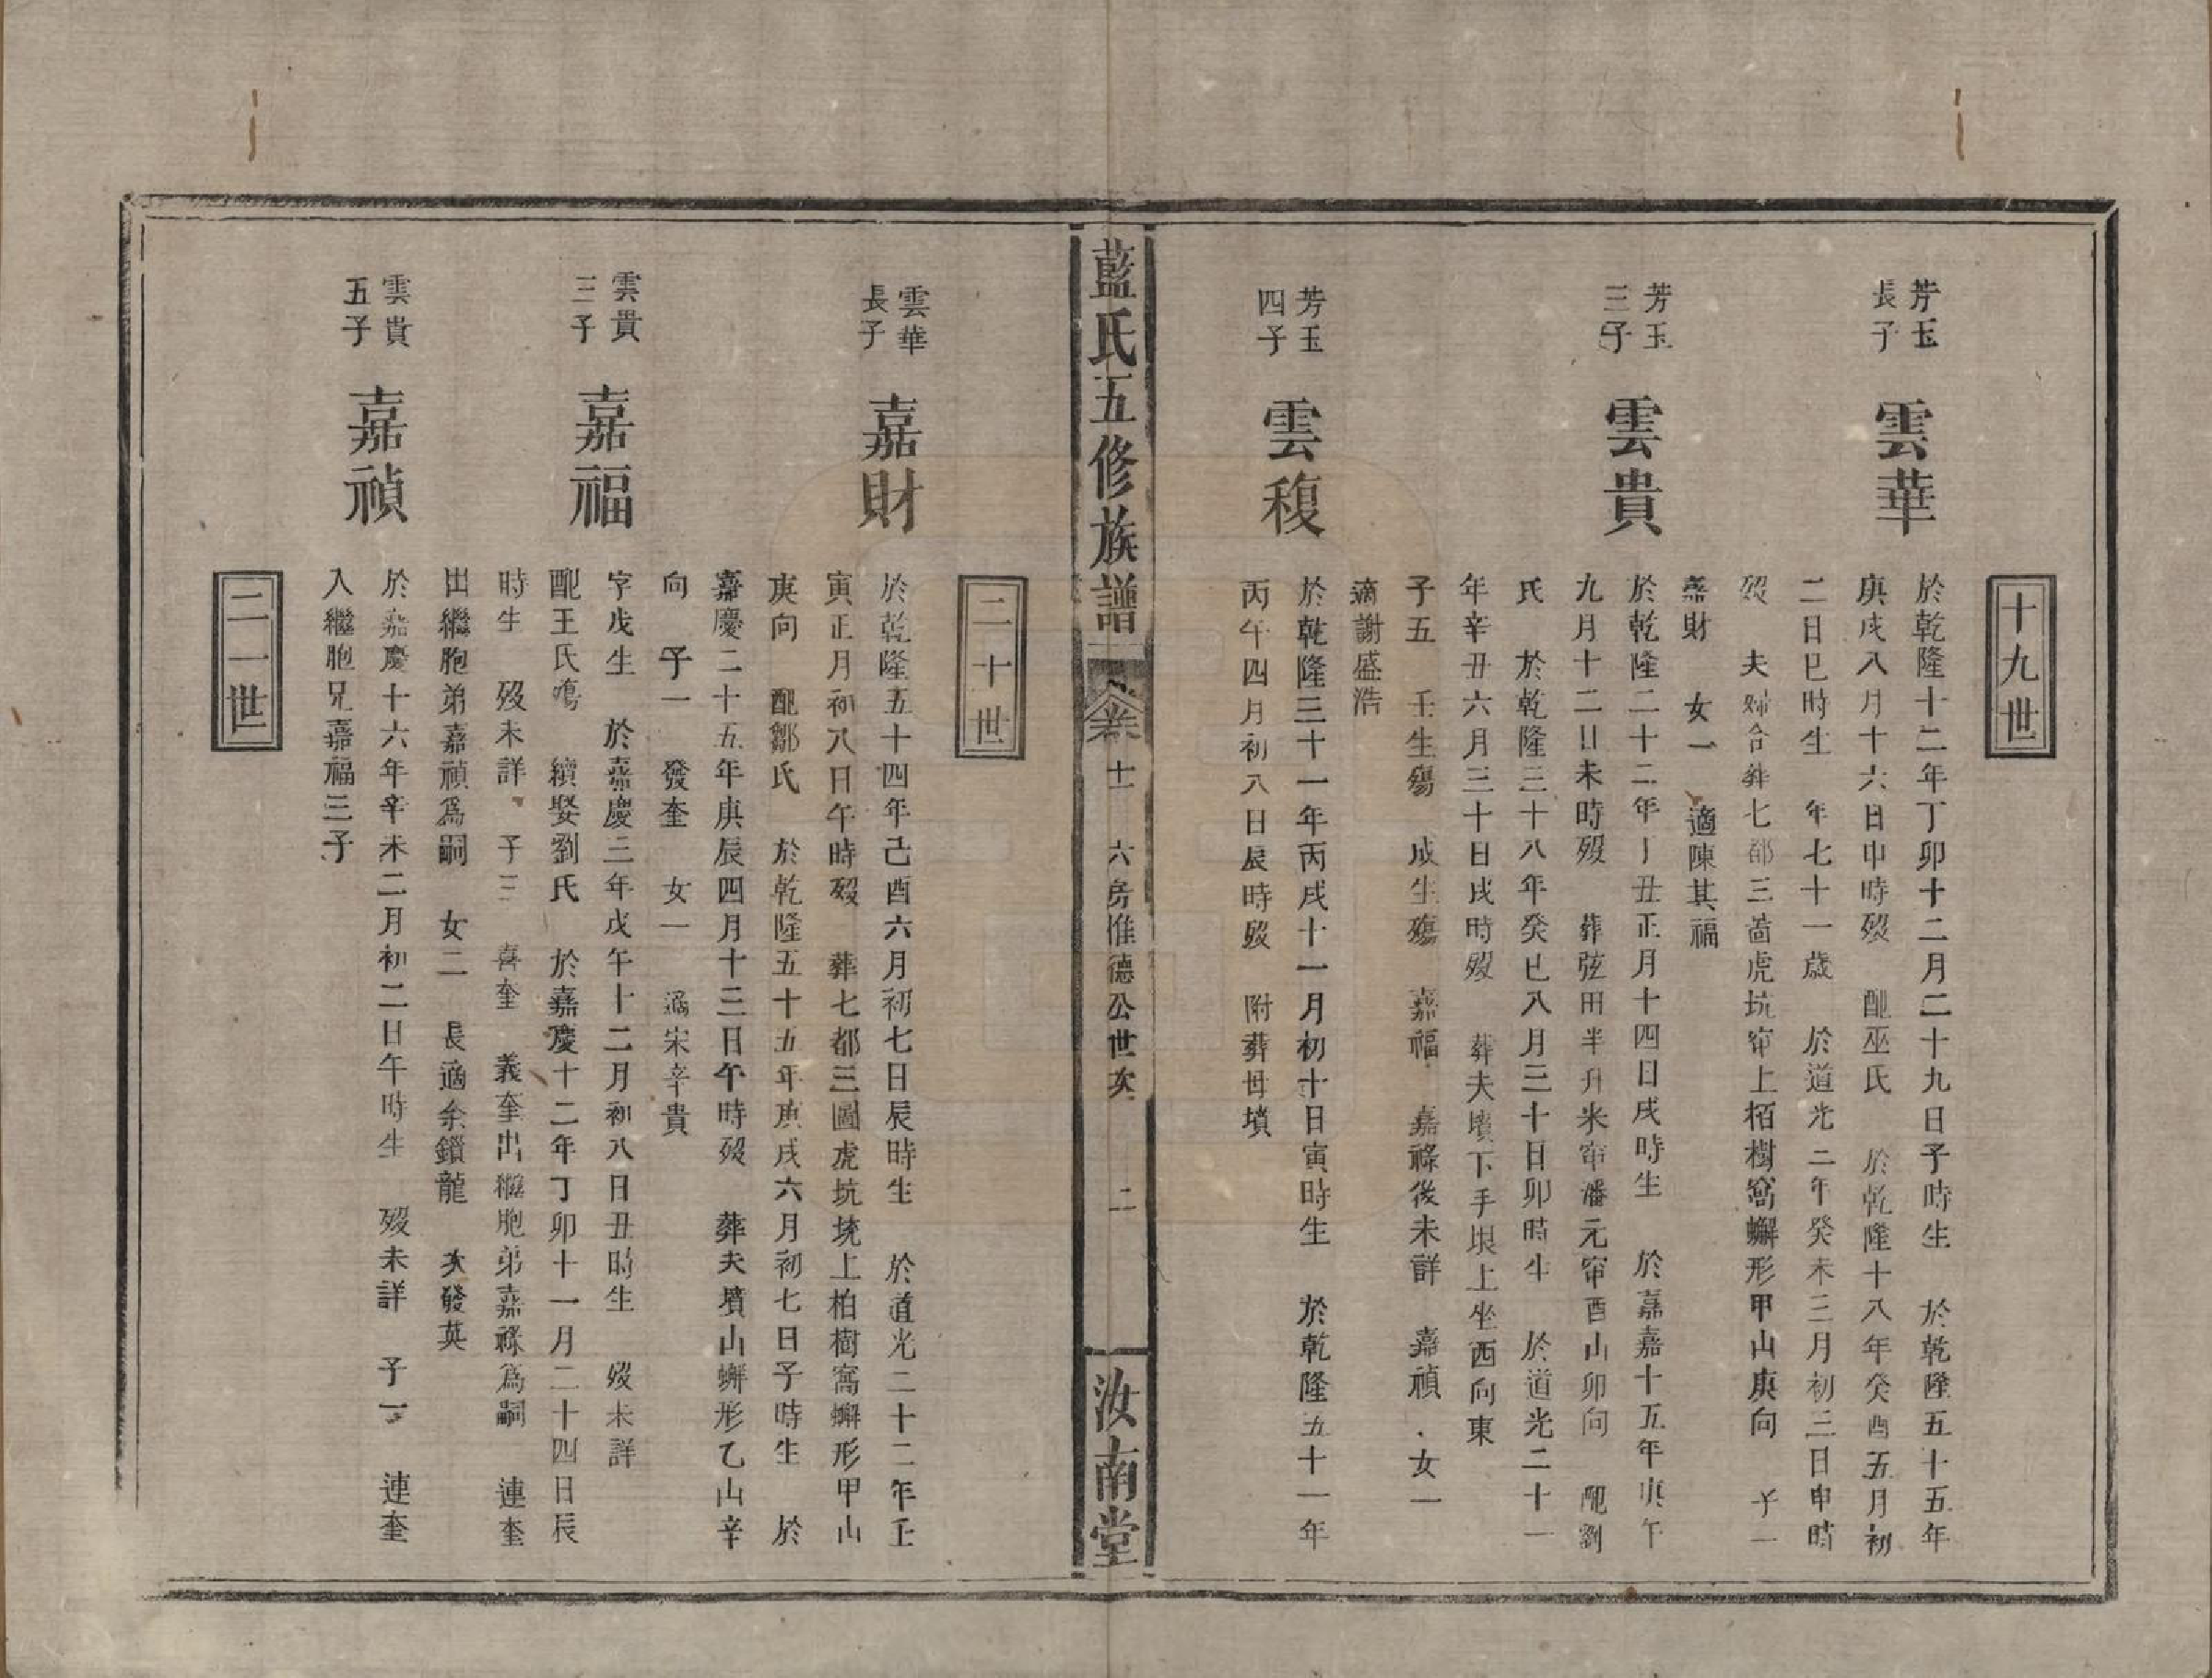 十九世
芳玉
長子
雲華
於乾隆十二年丁卯十二月二十九日子時生　於乾隆五十五年
庚戌八月十六日申時歿　配巫氏　於乾隆十八年癸酉五月初
二日巳時生　年七十一歲　於道光二年癸未三月初三日申時
歿　夫婦合葬七都三啚虎坑窜上栢樹窩蠏形甲山庚向　子一
嘉財　女一　適陳其福
芳玉
三子
雲貴
於乾隆二十二年丁丑正月十四日戌時生　於嘉嘉十五年庚午
九月十二日未時歿　葬弦田半升米窜潘元窜酉山卯向　配劉
氏　於乾隆三十八年癸巳八月三十日卯時生　於道光二十一
年辛丑六月三十日戌時歿　葬夫墳下手垠上坐西向東
子五　壬生殤　成生殤　嘉福　嘉祿後未詳　嘉禎　女一
適謝盛浩
芳玉
四子
雲複
於乾隆三十一年丙戌十一月初十日寅時生　於乾隆五十一年
丙午四月初八日辰時歿　附葬母墳
藍氏五修族譜　卷　十一　六房惟德公世次　二　汝南堂
二十世
雲華
長子
嘉財
於乾隆五十四年己酉六月初七日辰時生　於道光二十二年壬
寅正月初八日午時歿　葬七都三圖虎坑垅上柏樹窩蠏形甲山
庚向　配鄒氏　於乾隆五十五年庚戌六月初七日子時生　於
嘉慶二十五年庚辰四月十三日午時歿　葬夫墳山蠏形乙山辛
向　子一　發奎　女一　適宋辛貴
雲貴
三子
嘉福
字戊生　於嘉慶三年戊午十二月初八日丑時生　歿未詳
配王氏殤　續娶劉氏　於嘉慶十二年丁卯十一月二十四日辰
時生　歿未詳　子三　喜奎　義奎出繼胞弟嘉祿爲嗣　連奎
出繼胞弟嘉禎爲嗣　女二　長適余鎖龍　次發英
雲貴
五子
嘉禎
於嘉慶十六年辛未二月初二日午時生　歿未詳　子一　連奎
入繼胞兄嘉福三子
二一世